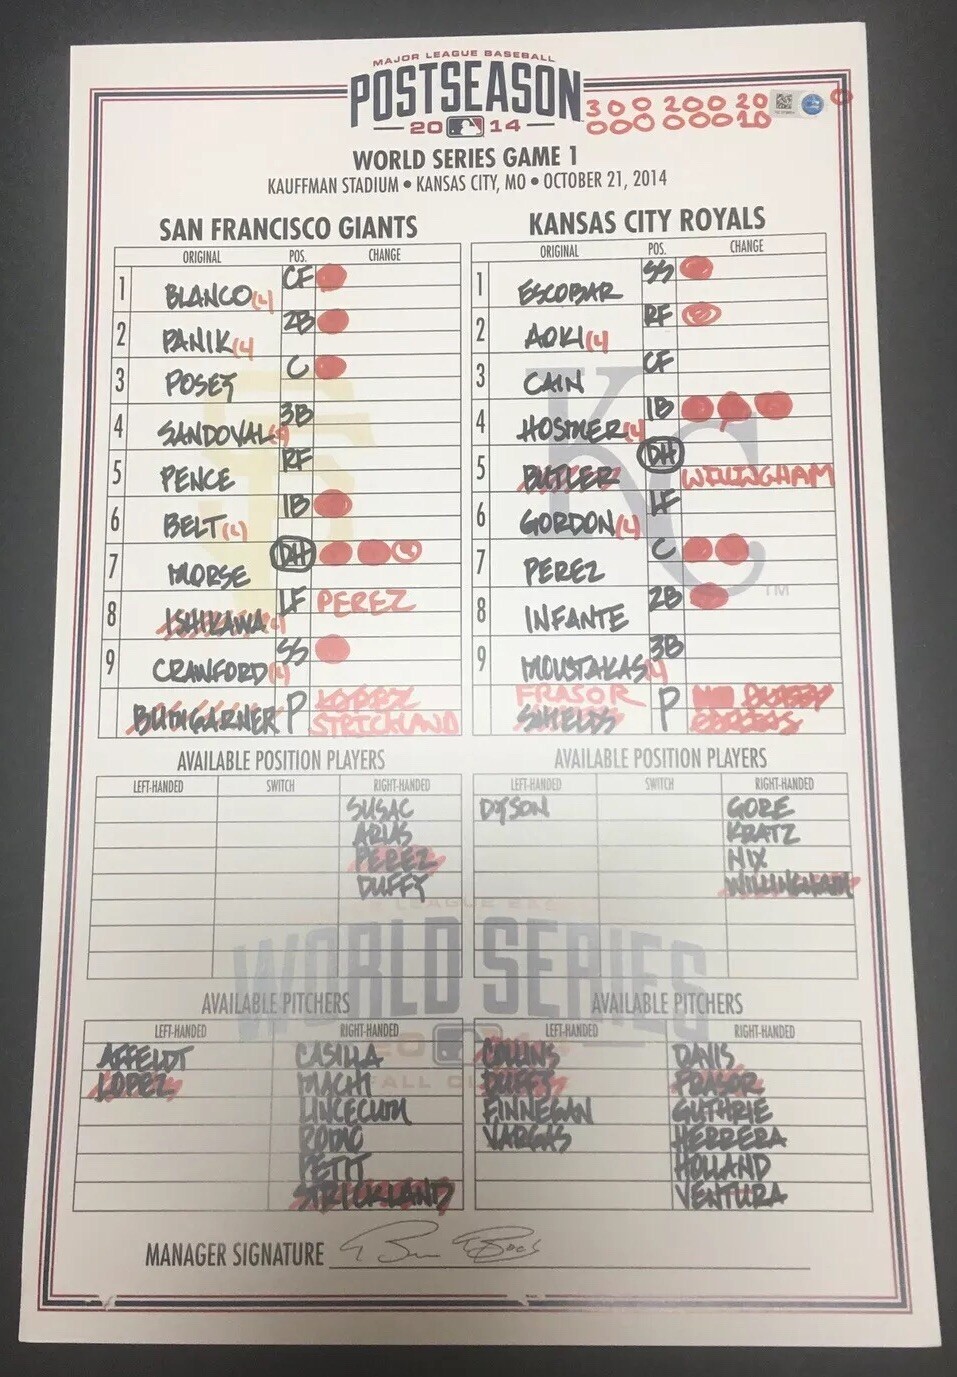 MAJOR LEAGUE BASEBALL
POSTSEASON
2014
300 200 20 0
000 000 10
WORLD SERIES GAME 1
KAUFFMAN STADIUM • KANSAS CITY, MO • OCTOBER 21, 2014
SAN FRANCISCO GIANTS
ORIGINAL POS. CHANGE
1 BLANCO (4) CF
2 PANIK (4 2B
3 POSEY C
4 SANDOVAL 3B
5 PENCE RF
6 BELT (4) 1B
7 MORSE DH
8 ISHIKAWA LF PEREZ
9 CRAWFORD (4) SS
BUMGARNER P LOPEZ
STRICKLAND
KANSAS CITY ROYALS
ORIGINAL POS. CHANGE
1 ESCOBAR SS
2 AOKI (4 RF
3 CAIN CF
4 HOSMER (4 1B
5 BUTLER DH WILLINGHAM
6 GORDON (4 LF
7 PEREZ C
8 INFANTE 2B
9 MOUSTAKAS 3B
FRASOR P DUFFY
SHIELDS COLLINS
TM
AVAILABLE POSITION PLAYERS
LEFT-HANDED SWITCH RIGHT-HANDED
SUSAC
ARIAS
PEREZ
DUFFY
AVAILABLE POSITION PLAYERS
LEFT-HANDED SWITCH RIGHT-HANDED
DYSON GORE
KRATZ
NIX
WILLINGHAM
WORLD SERIES
AVAILABLE PITCHERS
LEFT-HANDED RIGHT-HANDED
AFFELDT CASILLA
LOPEZ MACHI
LINCECUM
ROMO
PETIT
STRICKLAND
AVAILABLE PITCHERS
LEFT-HANDED RIGHT-HANDED
COLLINS DAVIS
DUFFY FRASOR
FINNEGAN GUTHRIE
VARGAS HERRERA
HOLLAND
VENTURA
MANAGER SIGNATURE